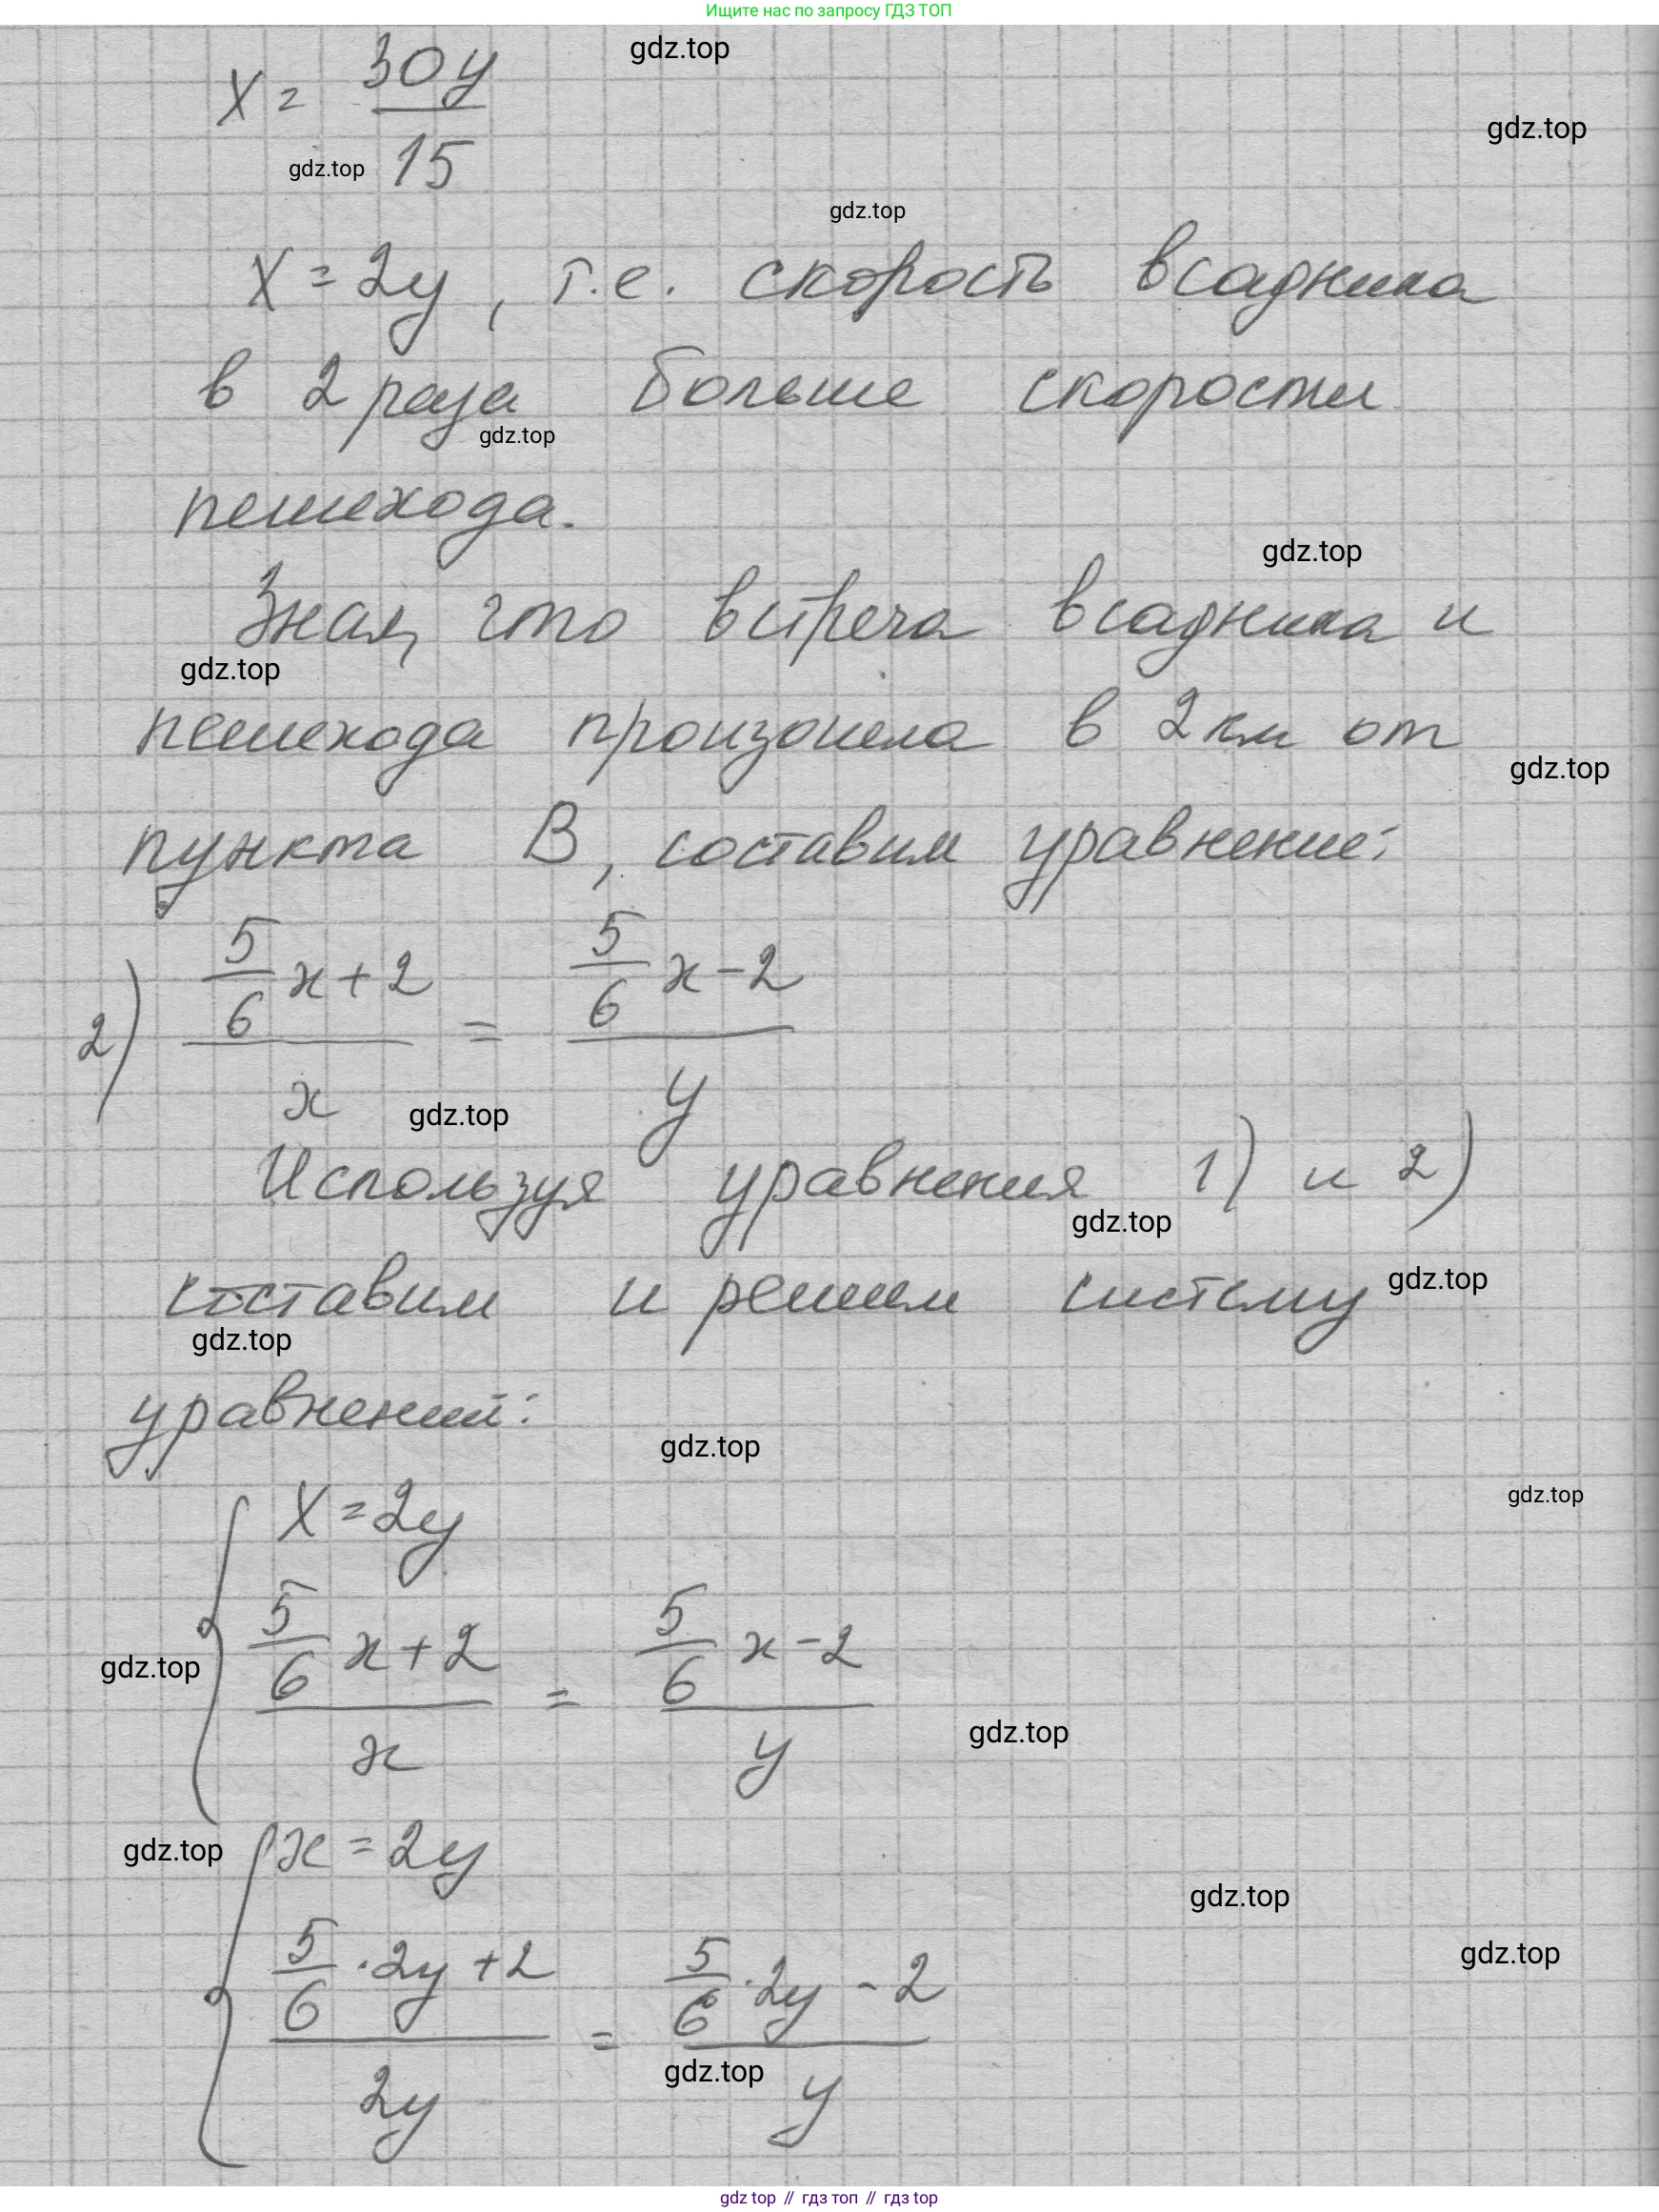 Ищите нас по запросу ГДЗ ТОП
gdz.top
x = 30y/15
gdz.top
gdz.top
gdz.top
x = 2y, т.е. скорость всадника
в 2 раза больше скорости
gdz.top
пешехода.
gdz.top
Зная, что встреча всадника и
gdz.top
пешехода произошла в 2 км от
gdz.top
пункта В, составим уравнение:
2) (5/6 x + 2)/x = (5/6 x - 2)/y
gdz.top
Используя уравнения 1) и 2)
gdz.top
составим и решим систему
gdz.top
gdz.top
уравнений:
gdz.top
gdz.top
{ x = 2y
(5/6 x + 2)/x = (5/6 x - 2)/y
gdz.top
gdz.top
gdz.top
{ x = 2y
gdz.top
gdz.top
(5/6 · 2y + 2)/2y = (5/6 · 2y - 2)/y
gdz.top
gdz top // гдз топ // gdz top